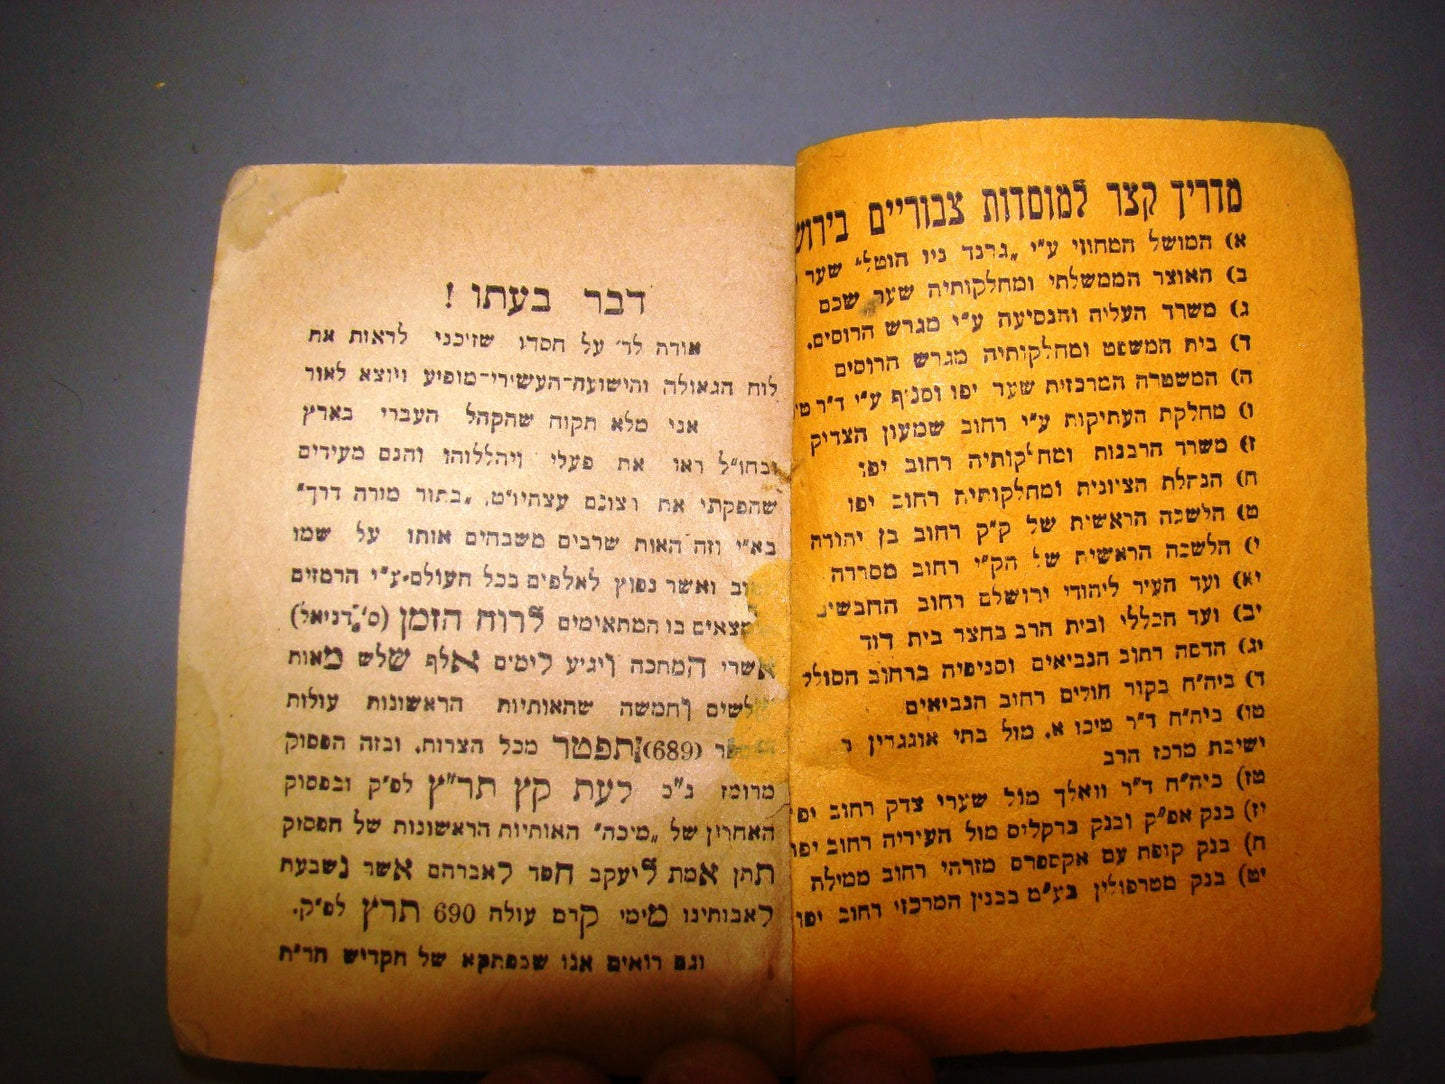 מדריך קצר למוסדות צבוריים
א) המושל המחוזי ע״י „גרנד ניו הוטל״ שער
ב) האוצר הממשלתי ומחלקותיה שער שכם
ג) משרד העליה והנסיעה ע״י מגרש הרוסים.
ד) בית המשפט ומחלקותיה מגרש הרוסים
ה) המשטרה המרכזית שער יפו וסניף ע״י ד״ר
ו) מחלקת העתיקות ע״י רחוב שמעון הצדיק
ז) משרד הרבנות ומחלקותיה רחוב יפו
ח) הנהלת הציונית ומחלקותיה רחוב יפו
ט) הלשכה הראשית של ק״ק רחוב בן יהודה
י) הלשכה הראשית של הק״י רחוב מסררה
יא) ועד העיר ליהודי ירושלם רחוב החבשים
יב) ועד הכללי ובית הרב בחצר בית דוד
יג) הדסה רחוב הנביאים וסניפיה ברחוב הסולל
ד) ביה״ח בקור חולים רחוב הנביאים
טו) בית״ח ד״ר טיכו א. מול בתי אונגרין
ישיבת מרכז הרב
טז) ביה״ח ד״ר וואלך מול שערי צדק רחוב יפו
יז) בנק אפ״ק ובנק ברקליס מול העיריה רחוב יפו
ח) בנק קופת עם אקספרס מזרחי רחוב ממילת
יט) בנק מטרפולין בע״מ בבנין המרכזי רחוב יפו
דבר בעתו !
אודה לד׳ על חסדו שזיכני לראות את
לוח הגאולה והישועה-העשירי-מופיע ויוצא לאור
אני מלא תקוה שהקהל העברי בארץ
ובחו״ל ראו את פעלי ויהללוהו והנם מעידים
שהפקתי את רצונם עצתיו״ט, „בתור מורה דרך״
בא״י וזה האות שרבים משבחים אותו על שמו
ואשר נפוץ לאלפים בכל העולם. ע״י הרמזים
הנמצאים בו המתאימים לרוח הזמן (ס׳ „דניאל)
אשרי המחכה ויגיע לימים אלף שלש מאות
שלשים וחמשה שהאותיות הראשונות עולות
(689) ותפטר מכל הצרות. ובזה הפסוק
מרומז ג״כ לעת קץ תר״ץ לפ״ק ובפסוק
האחרון של „מיכה׳ האותיות הראשונות של הפסוק
תתן אמת ליעקב חסד לאברהם אשר נשבעת
לאבותינו מימי קדם עולה 690 תרץ לפ״ק.
וגם רואים אנו שבפתקא של הקדיש הר״ח